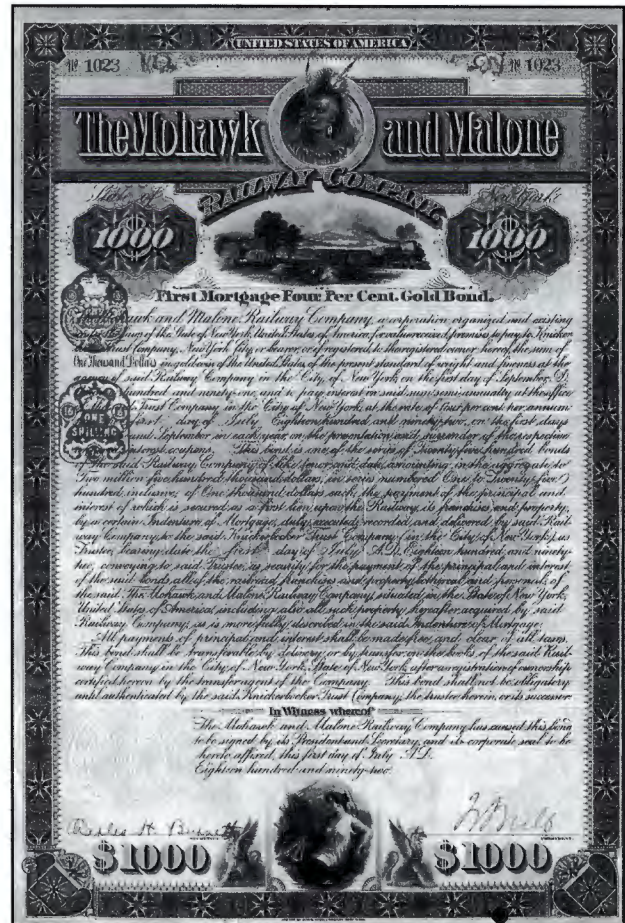 UNITED STATES OF AMERICA
№ 1023 № 1023
The Mohawk and Malone
RAILWAY COMPANY
State of New York
1000 1000
First Mortgage Four Per Cent. Gold Bond.
The Mohawk and Malone Railway Company, a corporation organized and existing
under the laws of the State of New York, United States of America, for value received, promises to pay to Knicker
Trust Company, New York City, or bearer, or if registered, to the registered owner hereof, the sum of
One Thousand Dollars in gold coin of the United States, of the present standard of weight and fineness at the
agency of said Railway Company in the City of New York, on the first day of September, A.D.
hundred and ninety-one, and to pay interest on said sum semi-annually at the office
Trust Company in the City of New York, at the rate of four per cent. per annum
first day of July Eighteen hundred and ninety-two, on the first days
and September in each year, on the presentation and surrender of the respective
interest coupons. This bond is one of the series of Twenty five hundred bonds
of the said Railway Company, of like tenor and date, amounting in the aggregate to
Two million five hundred thousand dollars, in series numbered One to Twenty-five
hundred, inclusive, of One thousand dollars each, the payment of the principal and
interest of which is secured as a first lien upon the Railway, its franchises and property,
by a certain Indenture of Mortgage, duly executed, recorded and delivered by said Rail-
way Company to the said Knickerbocker Trust Company (in the City of New York,) as
Trustee, bearing date the first day of July A.D. Eighteen hundred and ninety-
two, conveying to said Trustee, as security for the payment of the principal and interest
of the said bonds, all of the railroad, franchises and property, both real and personal, of
the said The Mohawk and Malone Railway Company, situated in the State of New York,
United States of America, including also all such property hereafter acquired by said
Railway Company, as is more fully described in the said Indenture of Mortgage.
All payments of principal and interest shall be made free and clear of all taxes.
This bond shall be transferable by delivery or by transfer on the books of the said Rail-
way Company in the City of New York, State of New York, after a registration of ownership
certified hereon by the transfer agent of the Company. This bond shall not be obligatory
until authenticated by the said Knickerbocker Trust Company, the trustee herein, or its successor
In Witness whereof
The Mohawk and Malone Railway Company has caused this bond
to be signed by its President and Secretary, and its corporate seal to be
hereto affixed, this first day of July A.D.
Eighteen hundred and ninety-two.
ONE
SHILLING
Charles H. Burnett
SECRETARY. PRESIDENT.
$1000 $1000